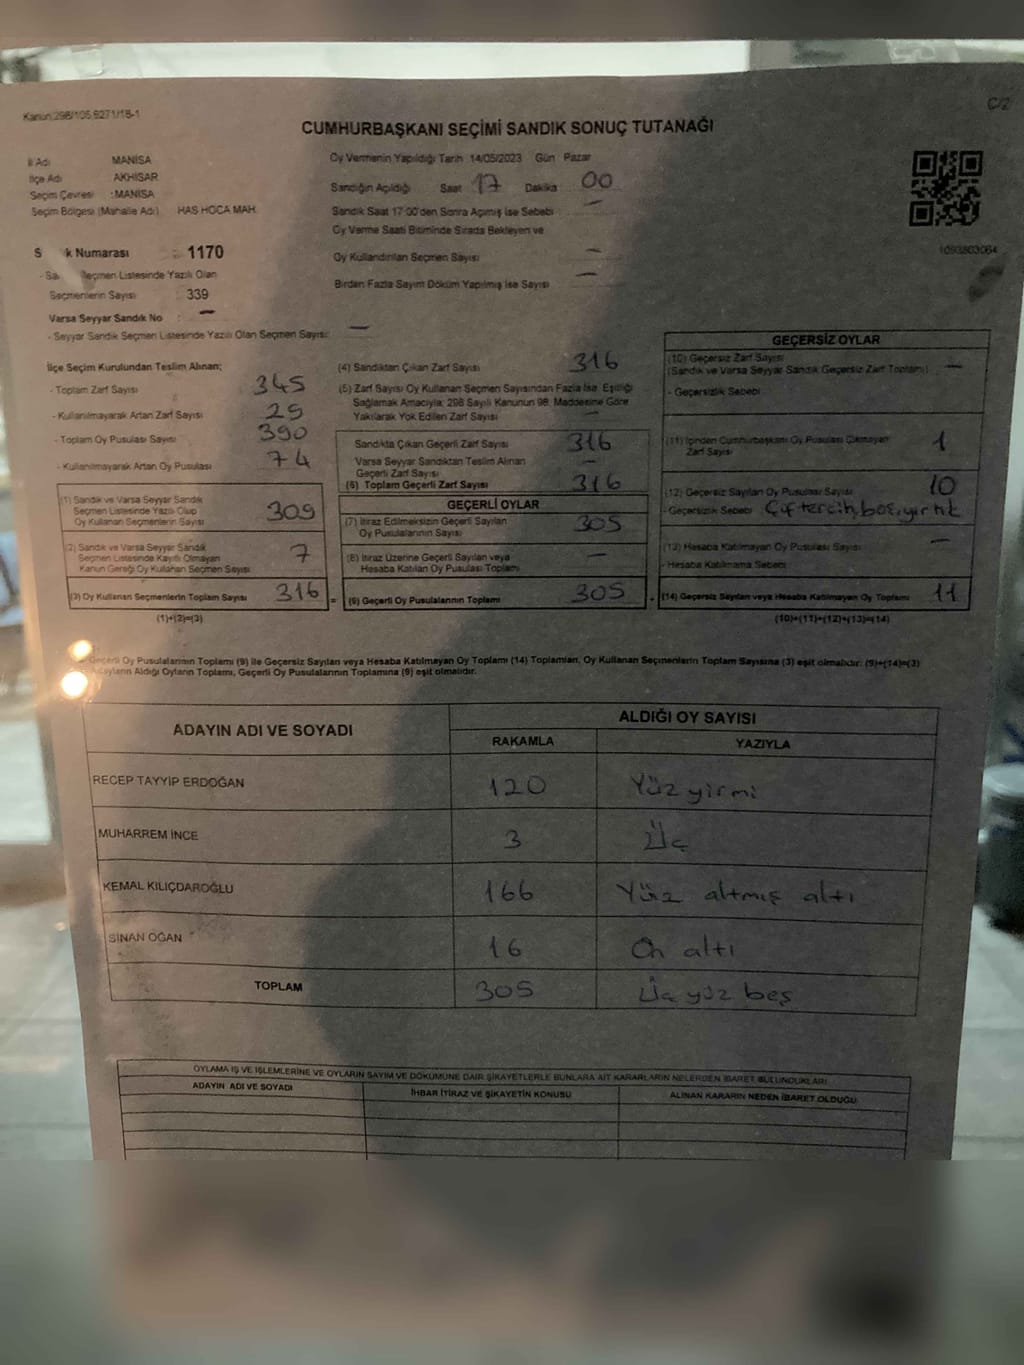 Kanun:298/105,6271/18-1
C/2
CUMHURBAŞKANI SEÇİMİ SANDIK SONUÇ TUTANAĞI
İl Adı MANİSA
İlçe Adı AKHİSAR
Seçim Çevresi : MANİSA
Seçim Bölgesi (Mahalle Adı) HAS HOCA MAH.
Oy Vermenin Yapıldığı Tarih 14/05/2023 Gün Pazar
Sandığın Açıldığı Saat 17 Dakika 00
Sandık Saat 17:00'den Sonra Açılmış İse Sebebi —
Oy Verme Saati Bitiminde Sırada Bekleyen ve
Oy Kullandırılan Seçmen Sayısı —
Birden Fazla Sayım Döküm Yapılmış İse Sayısı —
1093803064
S k Numarası : 1170
- Sa eçmen Listesinde Yazılı Olan
Seçmenlerin Sayısı : 339
Varsa Seyyar Sandık No : —
- Seyyar Sandık Seçmen Listesinde Yazılı Olan Seçmen Sayısı: —
İlçe Seçim Kurulundan Teslim Alınan;
- Toplam Zarf Sayısı 345
- Kullanılmayarak Artan Zarf Sayısı 29
- Toplam Oy Pusulası Sayısı 390
- Kullanılmayarak Artan Oy Pusulası 74
(1) Sandık ve Varsa Seyyar Sandık
Seçmen Listesinde Yazılı Olup
Oy Kullanan Seçmenlerin Sayısı 309
(2) Sandık ve Varsa Seyyar Sandık
Seçmen Listesinde Kayıtlı Olmayan
Kanun Gereği Oy Kullanan Seçmen Sayısı 7
(3) Oy Kullanan Seçmenlerin Toplam Sayısı 316 =
(1)+(2)=(3)
(4) Sandıktan Çıkan Zarf Sayısı 316
(5) Zarf Sayısı Oy Kullanan Seçmen Sayısından Fazla İse, Eşitliği
Sağlamak Amacıyla; 298 Sayılı Kanunun 98. Maddesine Göre
Yakılarak Yok Edilen Zarf Sayısı —
Sandıkta Çıkan Geçerli Zarf Sayısı 316
Varsa Seyyar Sandıktan Teslim Alınan
Geçerli Zarf Sayısı —
(6) Toplam Geçerli Zarf Sayısı 316
GEÇERLİ OYLAR
(7) İtiraz Edilmeksizin Geçerli Sayılan
Oy Pusulalarının Sayısı 305
(8) İtiraz Üzerine Geçerli Sayılan veya
Hesaba Katılan Oy Pusulası Toplamı —
(9) Geçerli Oy Pusulalarının Toplamı 305 +
GEÇERSİZ OYLAR
(10) Geçersiz Zarf Sayısı
(Sandık ve Varsa Seyyar Sandık Geçersiz Zarf Toplamı) —
- Geçersizlik Sebebi
(11) İçinden Cumhurbaşkanı Oy Pusulası Çıkmayan
Zarf Sayısı 1
(12) Geçersiz Sayılan Oy Pusulası Sayısı 10
- Geçersizlik Sebebi Çift tercih, boş, yırtık
(13) Hesaba Katılmayan Oy Pusulası Sayısı —
- Hesaba Katılmama Sebebi
(14) Geçersiz Sayılan veya Hesaba Katılmayan Oy Toplamı 11
(10)+(11)+(12)+(13)=(14)
Geçerli Oy Pusulalarının Toplamı (9) ile Geçersiz Sayılan veya Hesaba Katılmayan Oy Toplamı (14) Toplamları, Oy Kullanan Seçmenlerin Toplam Sayısına (3) eşit olmalıdır: (9)+(14)=(3)
Adayların Aldığı Oyların Toplamı, Geçerli Oy Pusulalarının Toplamına (9) eşit olmalıdır.
ADAYIN ADI VE SOYADI
ALDIĞI OY SAYISI
RAKAMLA YAZIYLA
RECEP TAYYİP ERDOĞAN 120 Yüz yirmi
MUHARREM İNCE 3 Üç
KEMAL KILIÇDAROĞLU 166 Yüz altmış altı
SİNAN OĞAN 16 On altı
TOPLAM 305 Üç yüz beş
OYLAMA İŞ VE İŞLEMLERİNE VE OYLARIN SAYIM VE DÖKÜMÜNE DAİR ŞİKAYETLERLE BUNLARA AİT KARARLARIN NELERDEN İBARET BULUNDUKLARI
ADAYIN ADI VE SOYADI İHBAR İTİRAZ VE ŞİKAYETİN KONUSU ALINAN KARARIN NEDEN İBARET OLDUĞU